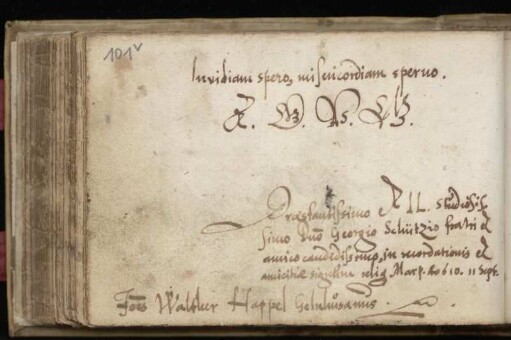 101v
Invidiam spero, misericordiam sperno.
Præstantissimo studiosis-
simo Dno Georgio Schützio fratri et
amico candidissimo, in recordationis et
amicitiæ signum relig. Marp. Ao 610. 11 Sept.
Joës Walther Happel Gelnhusanus.